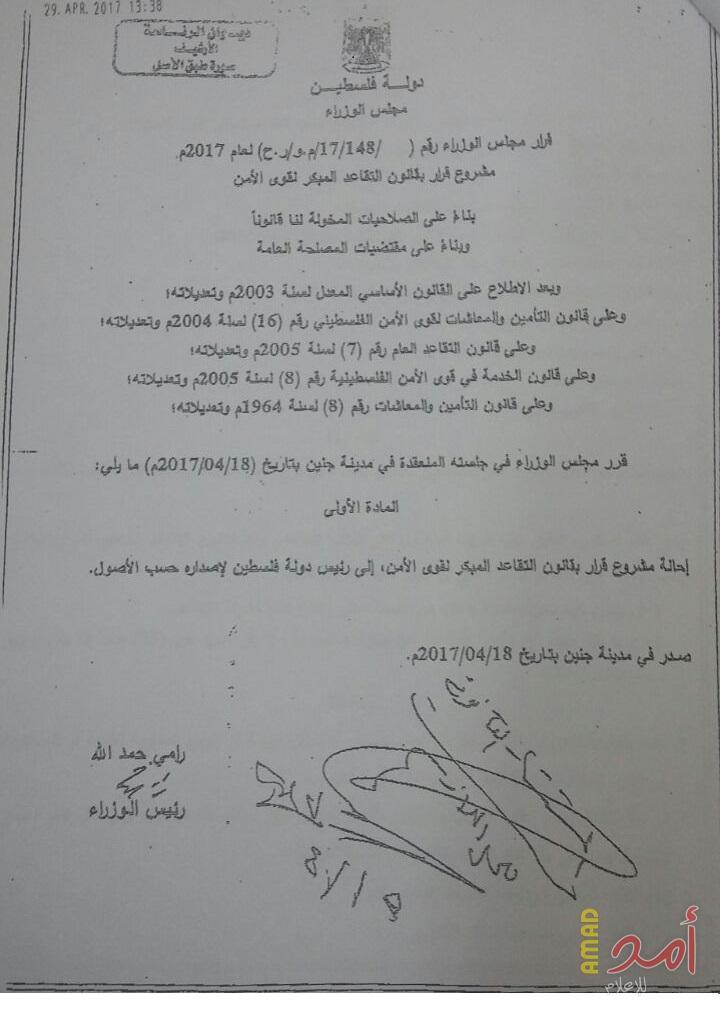 29. APR. 2017 13:38
الأرشيف
صورة طبق الأصل
دولة فلسطين
مجلس الوزراء
قرار مجلس الوزراء رقم ( /17/148/م.و/ر.ح) لعام 2017م.
مشروع قرار بقانون التقاعد المبكر لقوى الأمن
بناءً على الصلاحيات المخولة لنا قانوناً
وبناءً على مقتضيات المصلحة العامة
وبعد الاطلاع على القانون الأساسي المعدل لسنة 2003م وتعديلاته؛
وعلى قانون التأمين والمعاشات لقوى الأمن الفلسطيني رقم (16) لسنة 2004م وتعديلاته؛
وعلى قانون التقاعد العام رقم (7) لسنة 2005م وتعديلاته؛
وعلى قانون الخدمة في قوى الأمن الفلسطينية رقم (8) لسنة 2005م وتعديلاته؛
وعلى قانون التأمين والمعاشات رقم (8) لسنة 1964م وتعديلاته؛
قرر مجلس الوزراء في جلسته المنعقدة في مدينة جنين بتاريخ (2017/04/18م) ما يلي:
المادة الأولى
إحالة مشروع قرار بقانون التقاعد المبكر لقوى الأمن، إلى رئيس دولة فلسطين لإصداره حسب الأصول.
صدر في مدينة جنين بتاريخ 2017/04/18م.
رامي حمد الله
رئيس الوزراء
AMAD
أمد
للإعلام